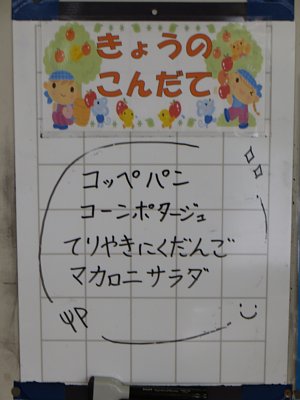 きょうの
こんだて
コッペパン
コーンポタージュ
てりやきにくだんご
マカロニサラダ